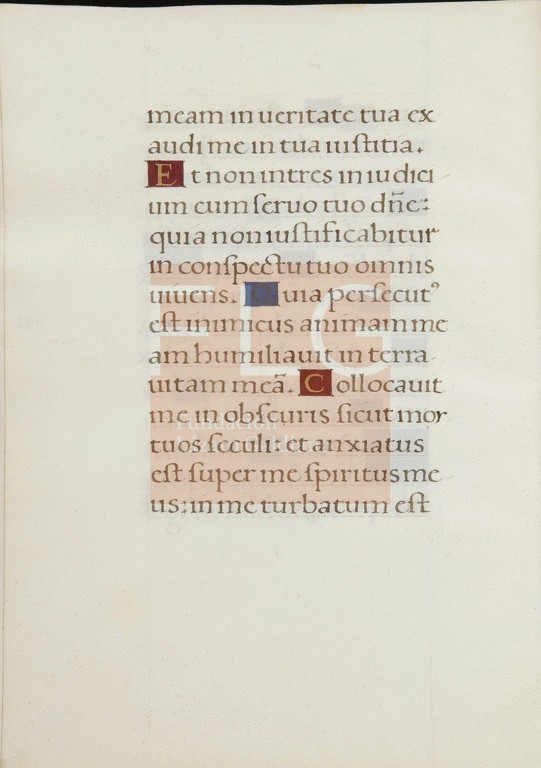 meam in ueritate tua ex
audi me in tua iuſtitia.
Et non intres in iudici
um cum ſeruo tuo dn̄e:
quia non iuſtificabitur
in conſpectu tuo omnis
uiuens. Quia perſecutꝰ
eſt inimicus animam me
am humiliauit in terra
uitam meā. Collocauit
me in obſcuris ſicut mor
tuos ſeculi: et anxiatus
eſt ſuper me ſpiritus me
us: in me turbatum eſt
FLG
Fundación
Lázaro Galdiano